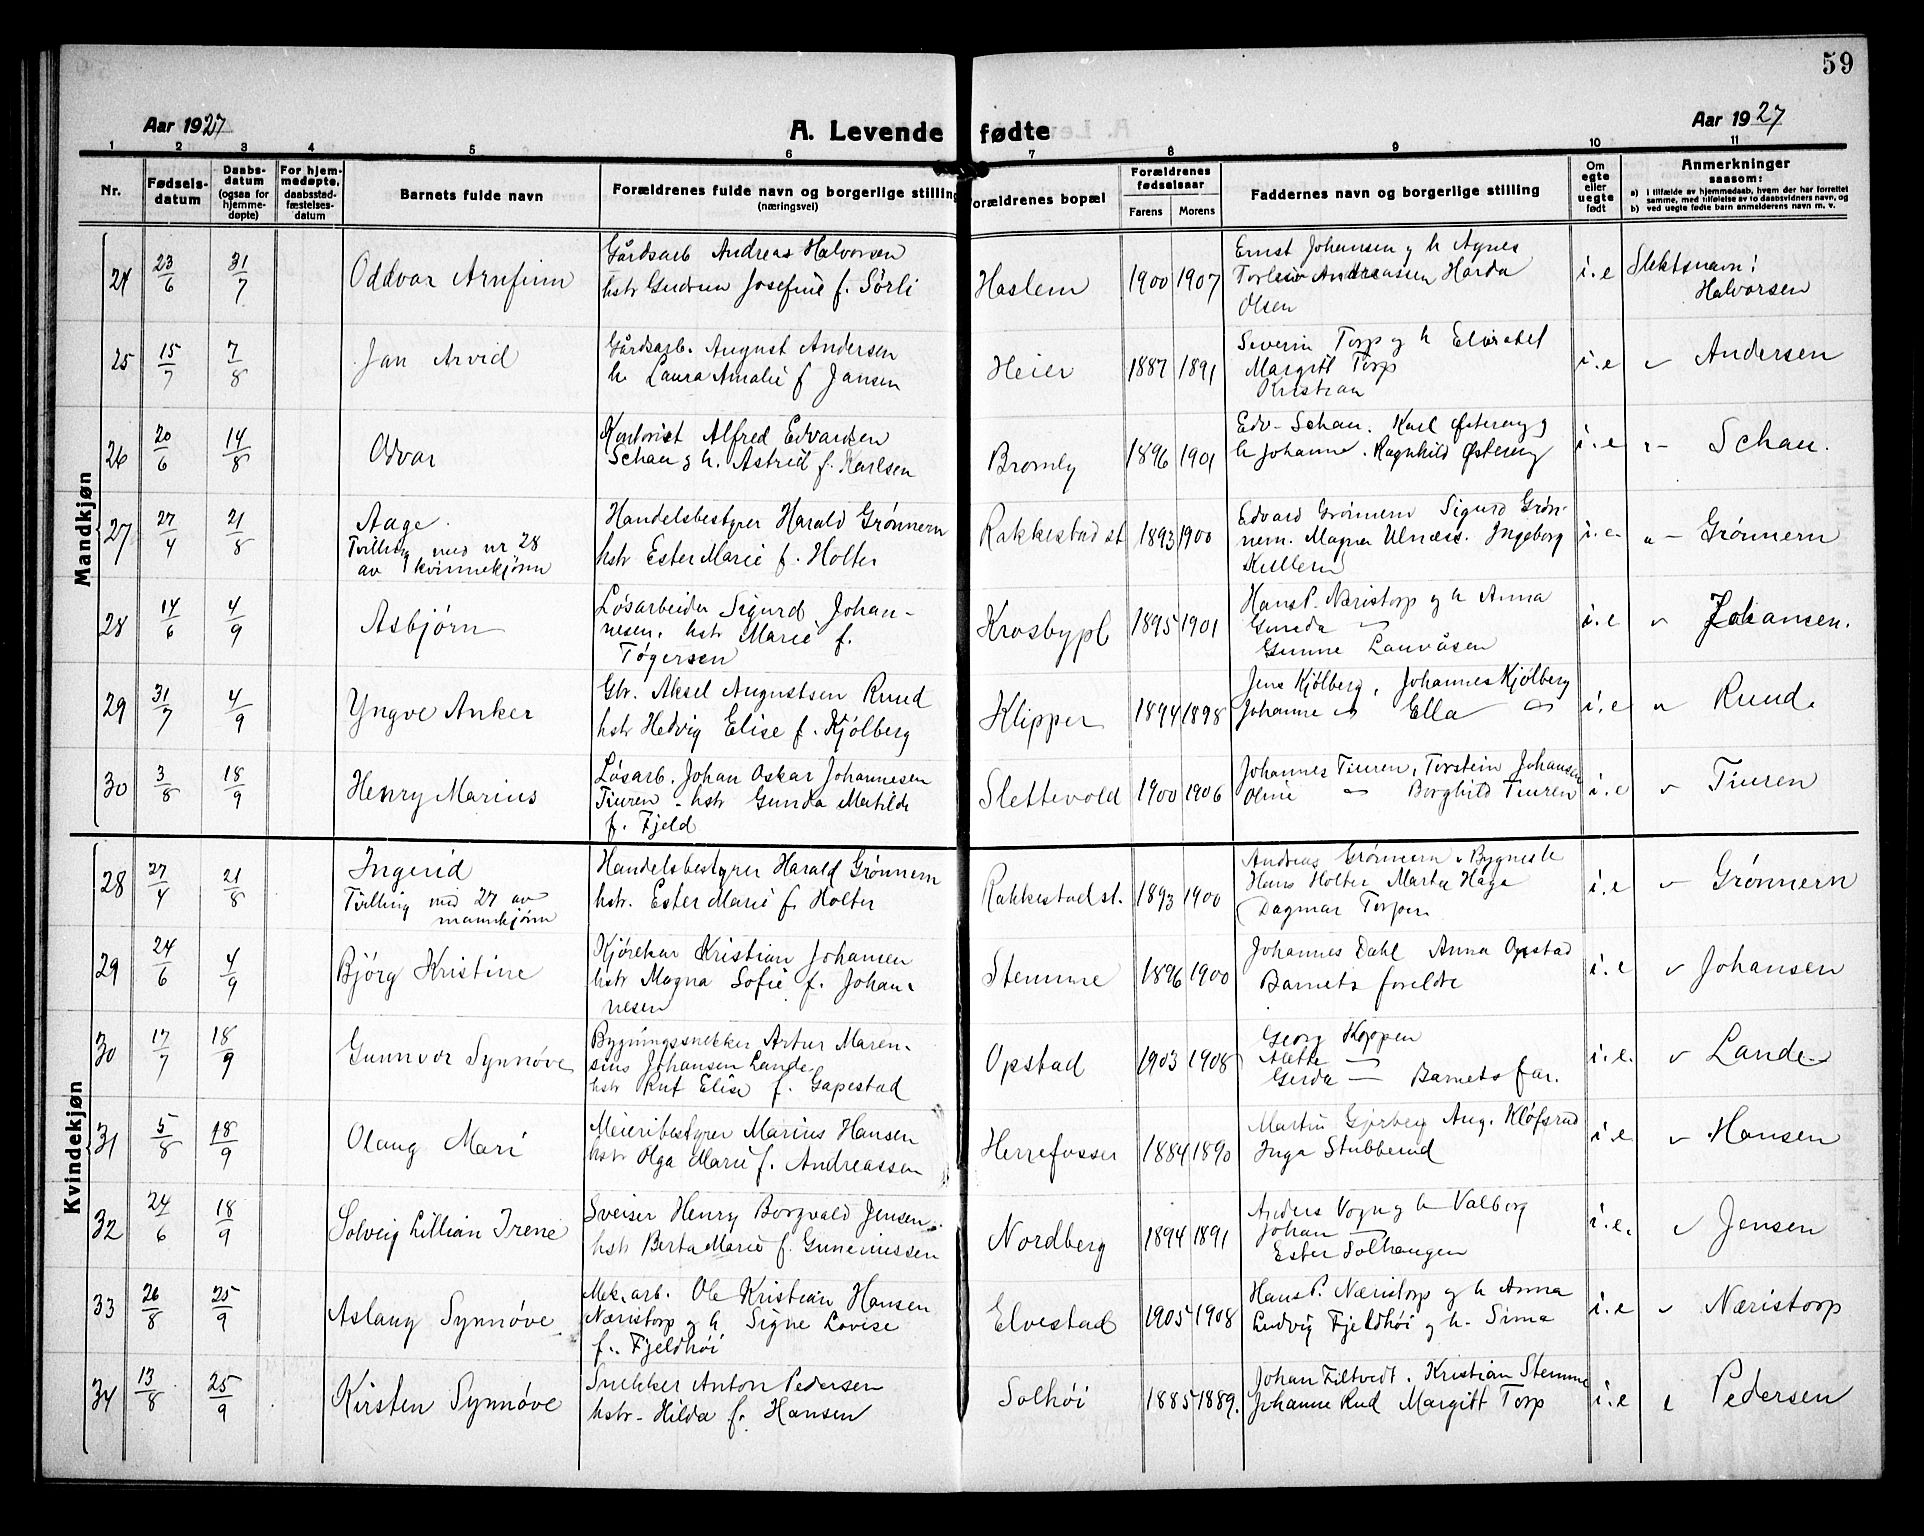 59
Aar 1927
A. Levende fødte
Aar 1927
1 2 3 4 5 6 7 8 9 10 11
Nr.
Fødsels-
datum
Daabs-
datum
(ogsaa for
hjemme-
døpte)
For hjem-
medøpte,
daabsstad-
fæstelses-
datum
Barnets fulde navn
Forældrenes fulde navn og borgerlige stilling
(næringsvei)
Forældrenes bopæl
Forældrenes
fødselsaar
Farens Morens
Faddernes navn og borgerlige stilling
Om
egte
eller
uegte
født
Anmerkninger
saasom:
a) I tilfælde av hjemmedaab, hvem der har forrettet
samme, med tilføielse av to daabsvidners navn, og
b) ved uegte fødte barn anmelderens navn m. v.
Mandkjøn
24 23/6 31/7 Oddvar Arnfinn
Gårdsarb Andreas Halvorsen
hstr Gudrun Josefine f. Sørli
Haslem 1900 1907
Ernst Johansen g h Agnes
Torleiv Andreassen Harda
Olsen
i.e Slektsnavn:
Halvorsen
25 15/7 7/8 Jan Arvid
Gårdsarb. August Andersen
h. Laura Amalie f Jansen
Heier 1887 1891
Severin Torp og h
Margitt Torp
Kristian
i.e " Andersen
26 20/6 14/8 Odvar
Kontorist Alfred Edvardsen
Schau g h. Astrid f. Karlsen
Bromby 1896 1901
Edv. Schau. Karl Østereng g
h Johanne. Ragnhild Østereng
i.e " Schau.
27 27/4 21/8 Aage.
Tvilling med nr 28
av kvinnekjønn
Handelsbestyrer Harald Grønnern
hstr Ester Marie f. Holter
Rakkestad st 1893 1900
Edvard Grønnern Sigurd Grøn-
nern. Magna Ulnæss. Ingeborg
i.e. " Grønnern
28 14/6 4/9 Asbjørn
Løsarbeider Sigurd Johan-
nesen. hstr Marie f.
Tøgersen
Krosbypl 1895 1901
Hans P. Næristorp og h Anna
Gunda "
Gunne Lauvåsen
i.e " Johansen.
29 31/7 4/9 Yngve Anker
Gbr. Aksel Augustsen Ruud
hstr Hedvig Elise f. Kjølberg
Klipper 1894 1898
Jens Kjølberg, Johannes Kjølberg
Johanne " Ella "
i.e " Ruud.
30 3/8 18/9 Henry Marius
Løsarb. Johan Oskar Johannesen
Tiuren - hstr Gunda Matilde
f. Fjeld
Slettevold 1900 1906
Johannes Tiuren, Torstein Johansen
Oline " Borghild Tiuren
i.e " Tiuren
Kvindekjøn
28 27/4 21/8 Ingerid
Tvilling med 27 av
mannkjønn
Handelsbestyrer Harald Grønnern
hstr. Ester Marie f. Holter
Rakkestad st. 1893 1900
Andreas Grønnern
Hans Holter Marta Haga
Dagmar Torper
i.e " Grønnern
29 24/6 4/9 Bjørg Kristine
Kjørekar Kristian Johansen
hstr Magna Sofie f. Johan-
nesen
Stemme 1896 1900
Johannes Dahl Anna Opstad
Barnets foreldre
i.e " Johansen
30 17/7 18/9 Gunnvor Synnøve
Bygningssnekker Artur Maren-
sius Johansen Lande
hstr Rut Elise f. Gapestad
Opstad 1903 1908
Georg Koppen
Alette "
Gerda " Barnets far.
i.e. " Lande
31 5/8 18/9 Olaug Mari
Meieribestyrer Marius Hansen
hstr Olga Marie f. Andreassen
Herrefosser 1884 1890
Martin Gjørberg Aug. Kløfsrud
Inga Stubberud
i.e " Hansen
32 24/6 18/9 Solveig Lillian Irene
Sveiser Henry Borgvald Jensen
hstr Berta Marie f. Guneriussen
Nordberg 1894 1891
Anders Vogn g h Valborg
Johan "
Ester Solhaugen
i.e. " Jensen
33 26/8 25/9 Aslaug Synnøve
Mek. arb. Ole Kristian Hansen
Næristorp og h Signe Lovise
f. Fjeldhøi
Elvestad 1905 1908
Hans P. Næristorp og h Anna
Ludvig Fjeldhøi g h. Sina
i.e " Næristorp
34 13/8 25/9 Kirsten Synnøve
Snekker Anton Pedersen
hstr- Hilda f. Hansen
Solhöi 1885 1889.
Johan Filtvedt. Kristian Stemme
Johanne Rud Margitt Torp
i.e " Pedersen